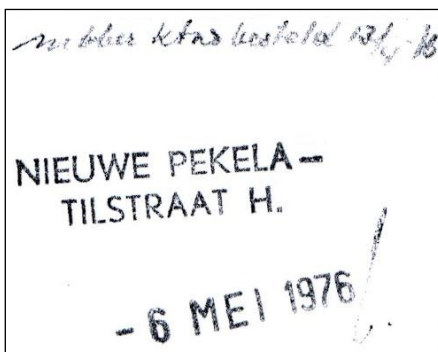 besteld
NIEUWE PEKELA –
TILSTRAAT H.
- 6 MEI 1976